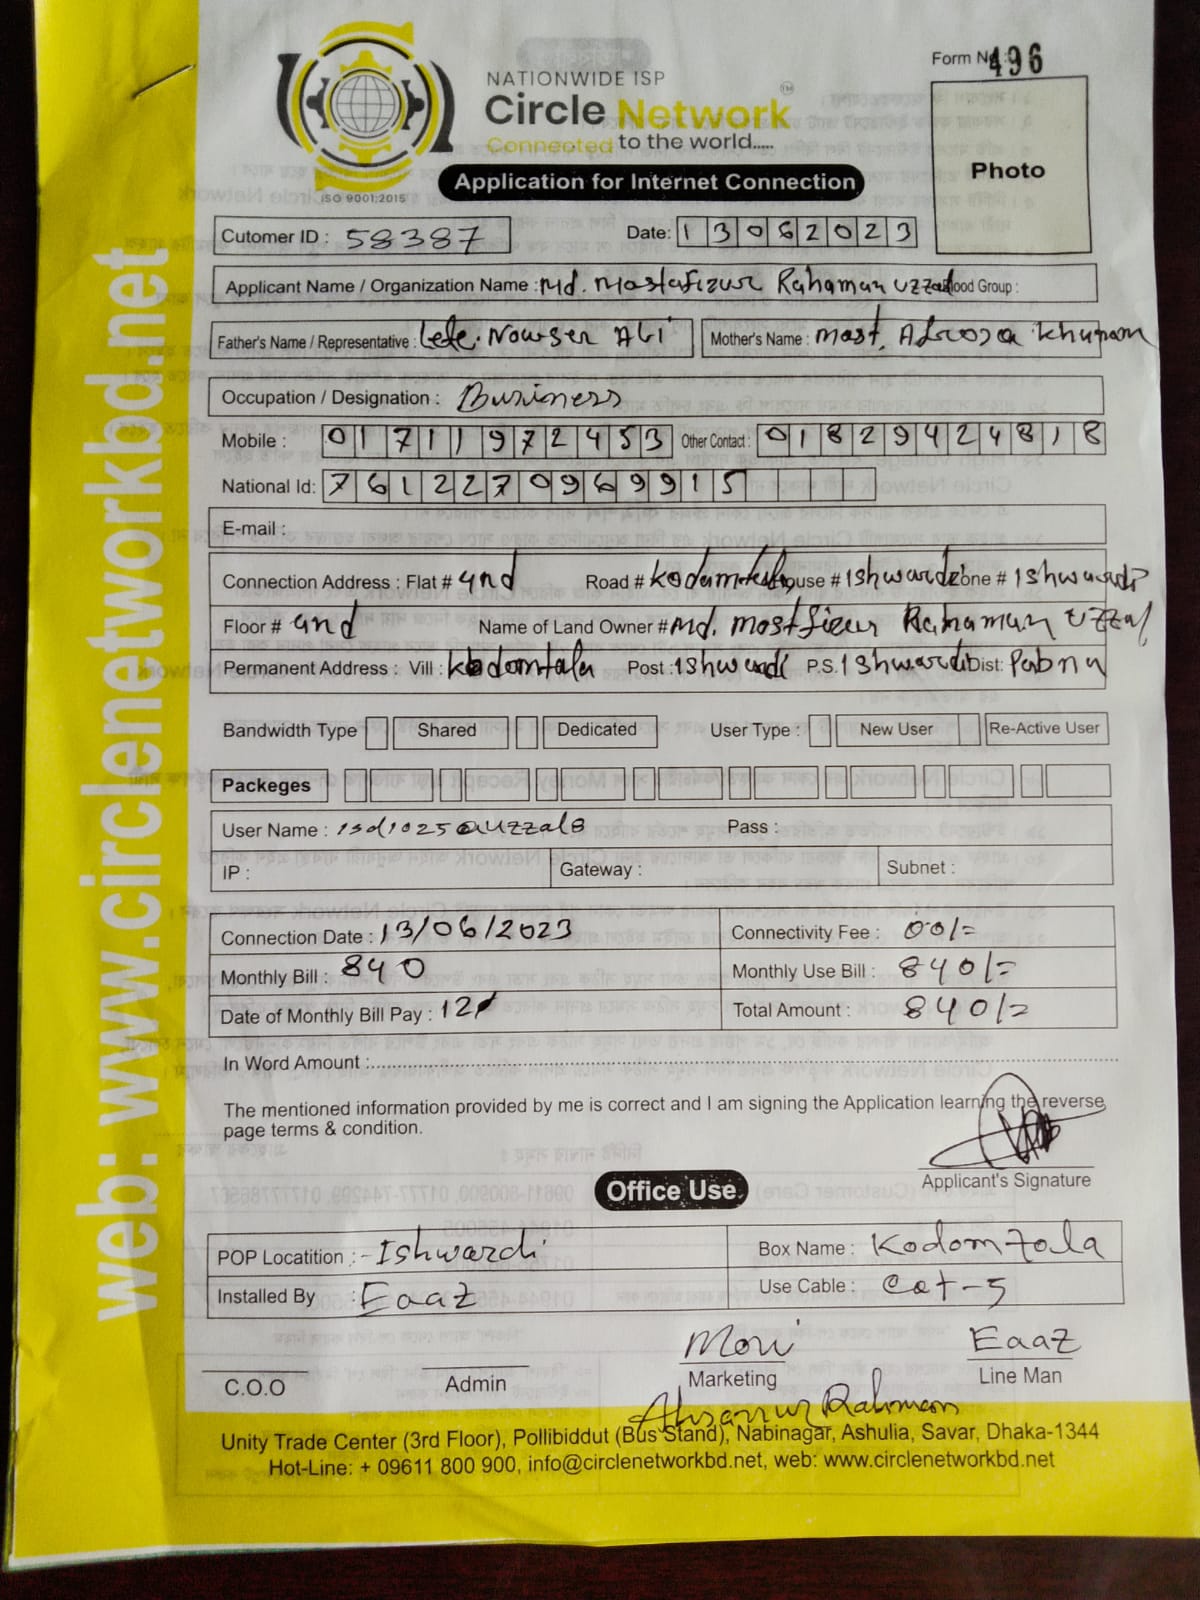 Form No: 496
NATIONWIDE ISP
Circle Network TM
Connected to the world.....
Application for Internet Connection
ISO 9001:2015
Photo
Cutomer ID : 58387 Date: 13062023
Applicant Name / Organization Name : Md. Mostafizur Rahaman uzzal Blood Group :
Father's Name / Representative : Lete. Nowser Ali Mother's Name : Most. Afroza Khunam
Occupation / Designation : Business
Mobile : 01711972453 Other Contact : 01829424818
National Id: 7612270969915
E-mail :
Connection Address : Flat # 4nd Road # Kodomtola House # Ishwardi Zone # Ishwardi
Floor # 4nd Name of Land Owner # Md. Mostfizur Rahaman Uzzal
Permanent Address : Vill : Kodomtala Post : Ishwardi P.S. Ishwardi Dist: Pabna
Bandwidth Type Shared Dedicated User Type : New User Re-Active User
Packeges
User Name : isd1025@uzzal8 Pass :
IP : Gateway : Subnet :
Connection Date : 13/06/2023 Connectivity Fee : 00/=
Monthly Bill : 840 Monthly Use Bill : 840/=
Date of Monthly Bill Pay : 12 Total Amount : 840/=
In Word Amount :
The mentioned information provided by me is correct and I am signing the Application learning the reverse
page terms & condition.
Applicant's Signature
Office Use
POP Locatition : - Ishwardi Box Name : Kodomtola
Installed By : Eaaz Use Cable : Cat-5
Moni Eaaz
C.O.O Admin Marketing Line Man
Ahsanur Rahman
Unity Trade Center (3rd Floor), Pollibiddut (Bus Stand), Nabinagar, Ashulia, Savar, Dhaka-1344
Hot-Line: + 09611 800 900, info@circlenetworkbd.net, web: www.circlenetworkbd.net
web: www.circlenetworkbd.net